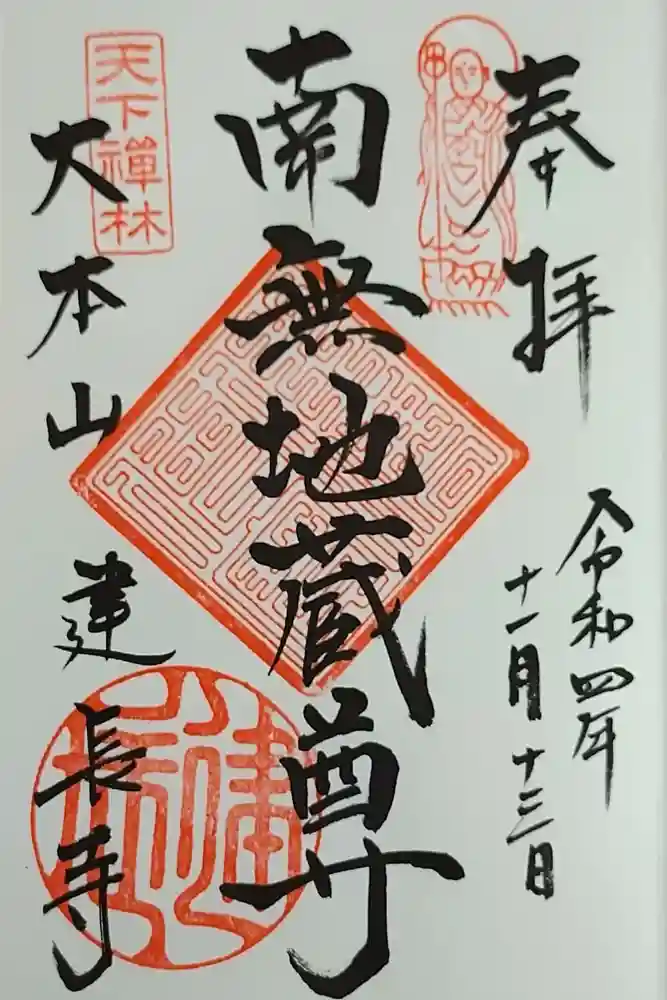 奉拝
令和四年
十一月十三日
南無地蔵尊
天下禅林
大本山
建長寺